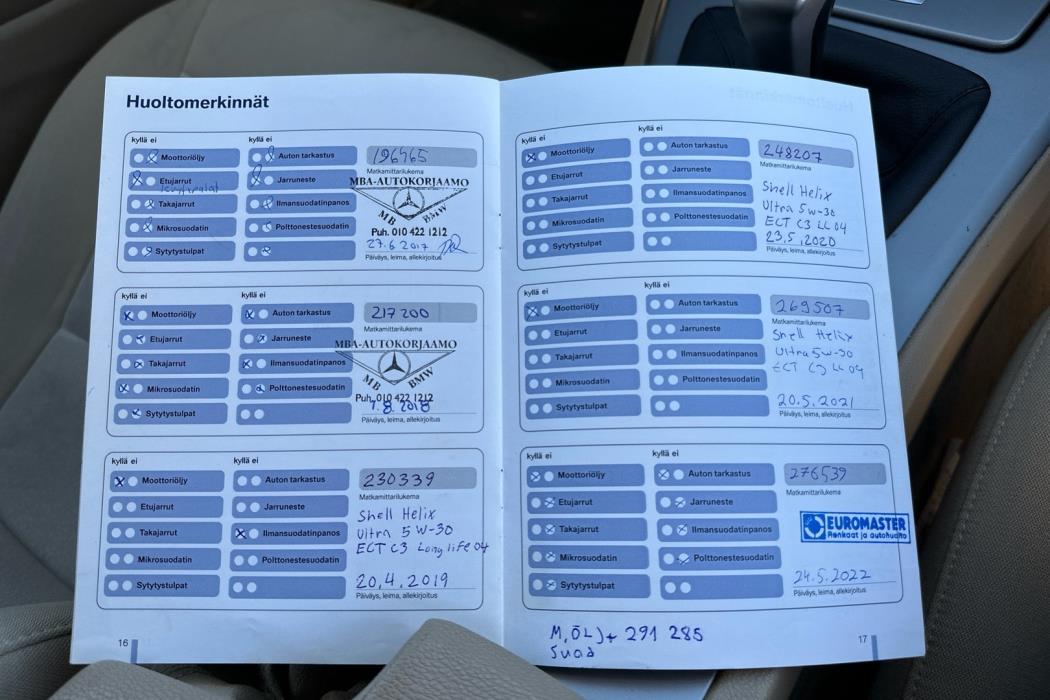 Huoltomerkinnät
kyllä ei
kyllä ei
Moottoriöljy
Auton tarkastus
196465
Etujarrut
Jarruneste
MBA-AUTOKORJAAMO
Takajarrut
Ilmansuodatinpanos
MB BMW
Mikrosuodatin
Polttonestesuodatin
Puh. 010 422 1212
27.6 2017
Sytytystulpat
Päiväys, leima, allekirjoitus
kyllä ei
kyllä ei
Moottoriöljy
Auton tarkastus
217 200
Matkamittarilukema
Etujarrut
Jarruneste
MBA-AUTOKORJAAMO
Takajarrut
Ilmansuodatinpanos
MB BMW
Mikrosuodatin
Polttonestesuodatin
Puh. 010 422 1212
1.8.2018
Sytytystulpat
Päiväys, leima, allekirjoitus
kyllä ei
kyllä ei
Moottoriöljy
Auton tarkastus
230339
Matkamittarilukema
Etujarrut
Jarruneste
Shell Helix
Takajarrut
Ilmansuodatinpanos
Ultra 5W-30
ECT C3 Long life 04
Mikrosuodatin
Polttonestesuodatin
20.4.2019
Sytytystulpat
Päiväys, leima, allekirjoitus
16
kyllä ei
kyllä ei
Moottoriöljy
Auton tarkastus
248207
Matkamittarilukema
Etujarrut
Jarruneste
Shell Helix
Takajarrut
Ilmansuodatinpanos
Ultra 5w-30
Mikrosuodatin
Polttonestesuodatin
ECT C3 LL 04
23.5.2020
Sytytystulpat
Päiväys, leima, allekirjoitus
kyllä ei
kyllä ei
Moottoriöljy
Auton tarkastus
269507
Matkamittarilukema
Etujarrut
Jarruneste
Shell Helix
Takajarrut
Ilmansuodatinpanos
Ultra 5w-30
ECT C3 LL 04
Mikrosuodatin
Polttonestesuodatin
20.5.2021
Sytytystulpat
Päiväys, leima, allekirjoitus
kyllä ei
kyllä ei
Moottoriöljy
Auton tarkastus
276539
Matkamittarilukema
Etujarrut
Jarruneste
Takajarrut
Ilmansuodatinpanos
EUROMASTER
Renkaat ja autohuolto
Mikrosuodatin
Polttonestesuodatin
24.5.2022
Sytytystulpat
Päiväys, leima, allekirjoitus
291 285
17